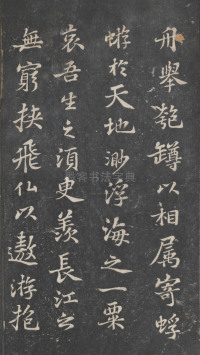 舟舉匏罇以相属寄蜉
蝣於天地渺浮海之一粟
哀吾生之須臾羨長江之
無窮挾飛仙以遨游抱